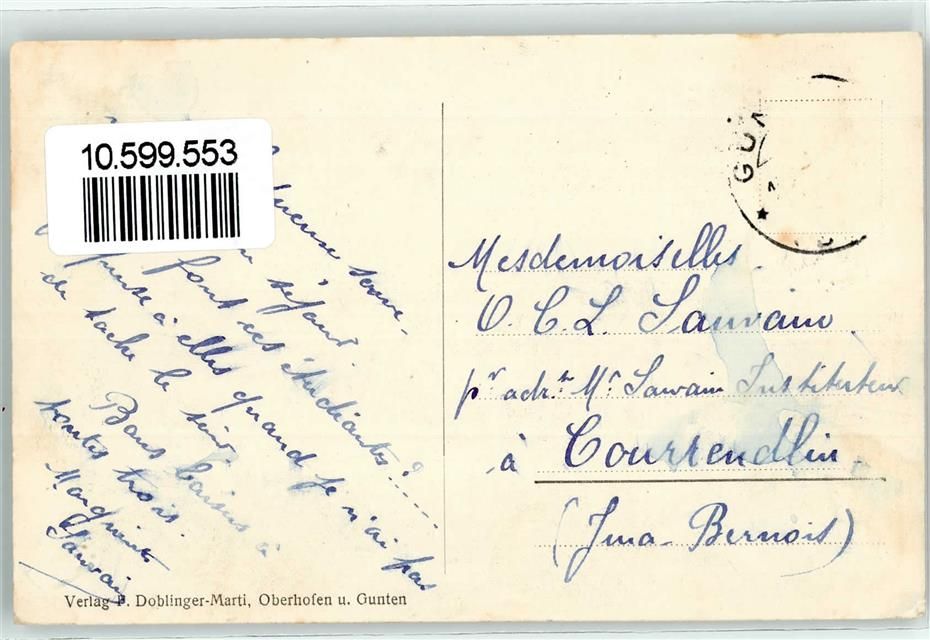 10.599.553
séjour.
font ces étudiantes?....
pense à elles quand je n'ai pas
de tache le soir.
Bons baisers à
toutes trois.
Marguerite
Sauvain
GU
Mesdemoiselles
O. C. L. Sauvain
pr adr. Mr Sauvain Instituteur
à Courrendlin
(Jura-Bernois)
Verlag P. Doblinger-Marti, Oberhofen u. Gunten